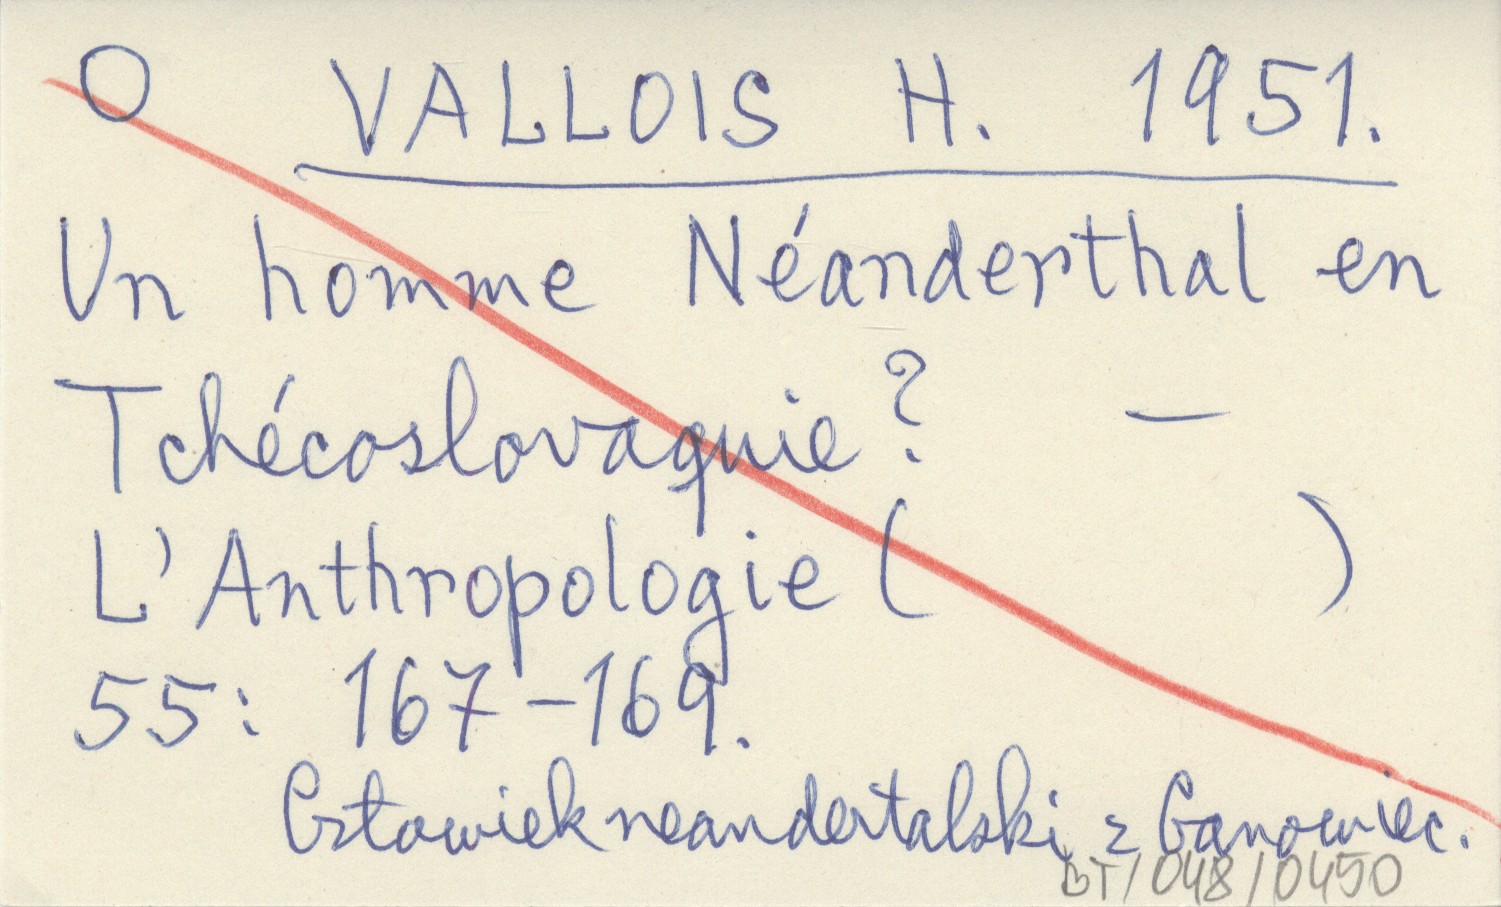 O VALLOIS H. 1951.
Un homme Néanderthal en
Tchécoslovaquie? —
L'Anthropologie ( )
55: 167-169.
Człowiek neandertalski z Ganowiec.
BT/048/0450